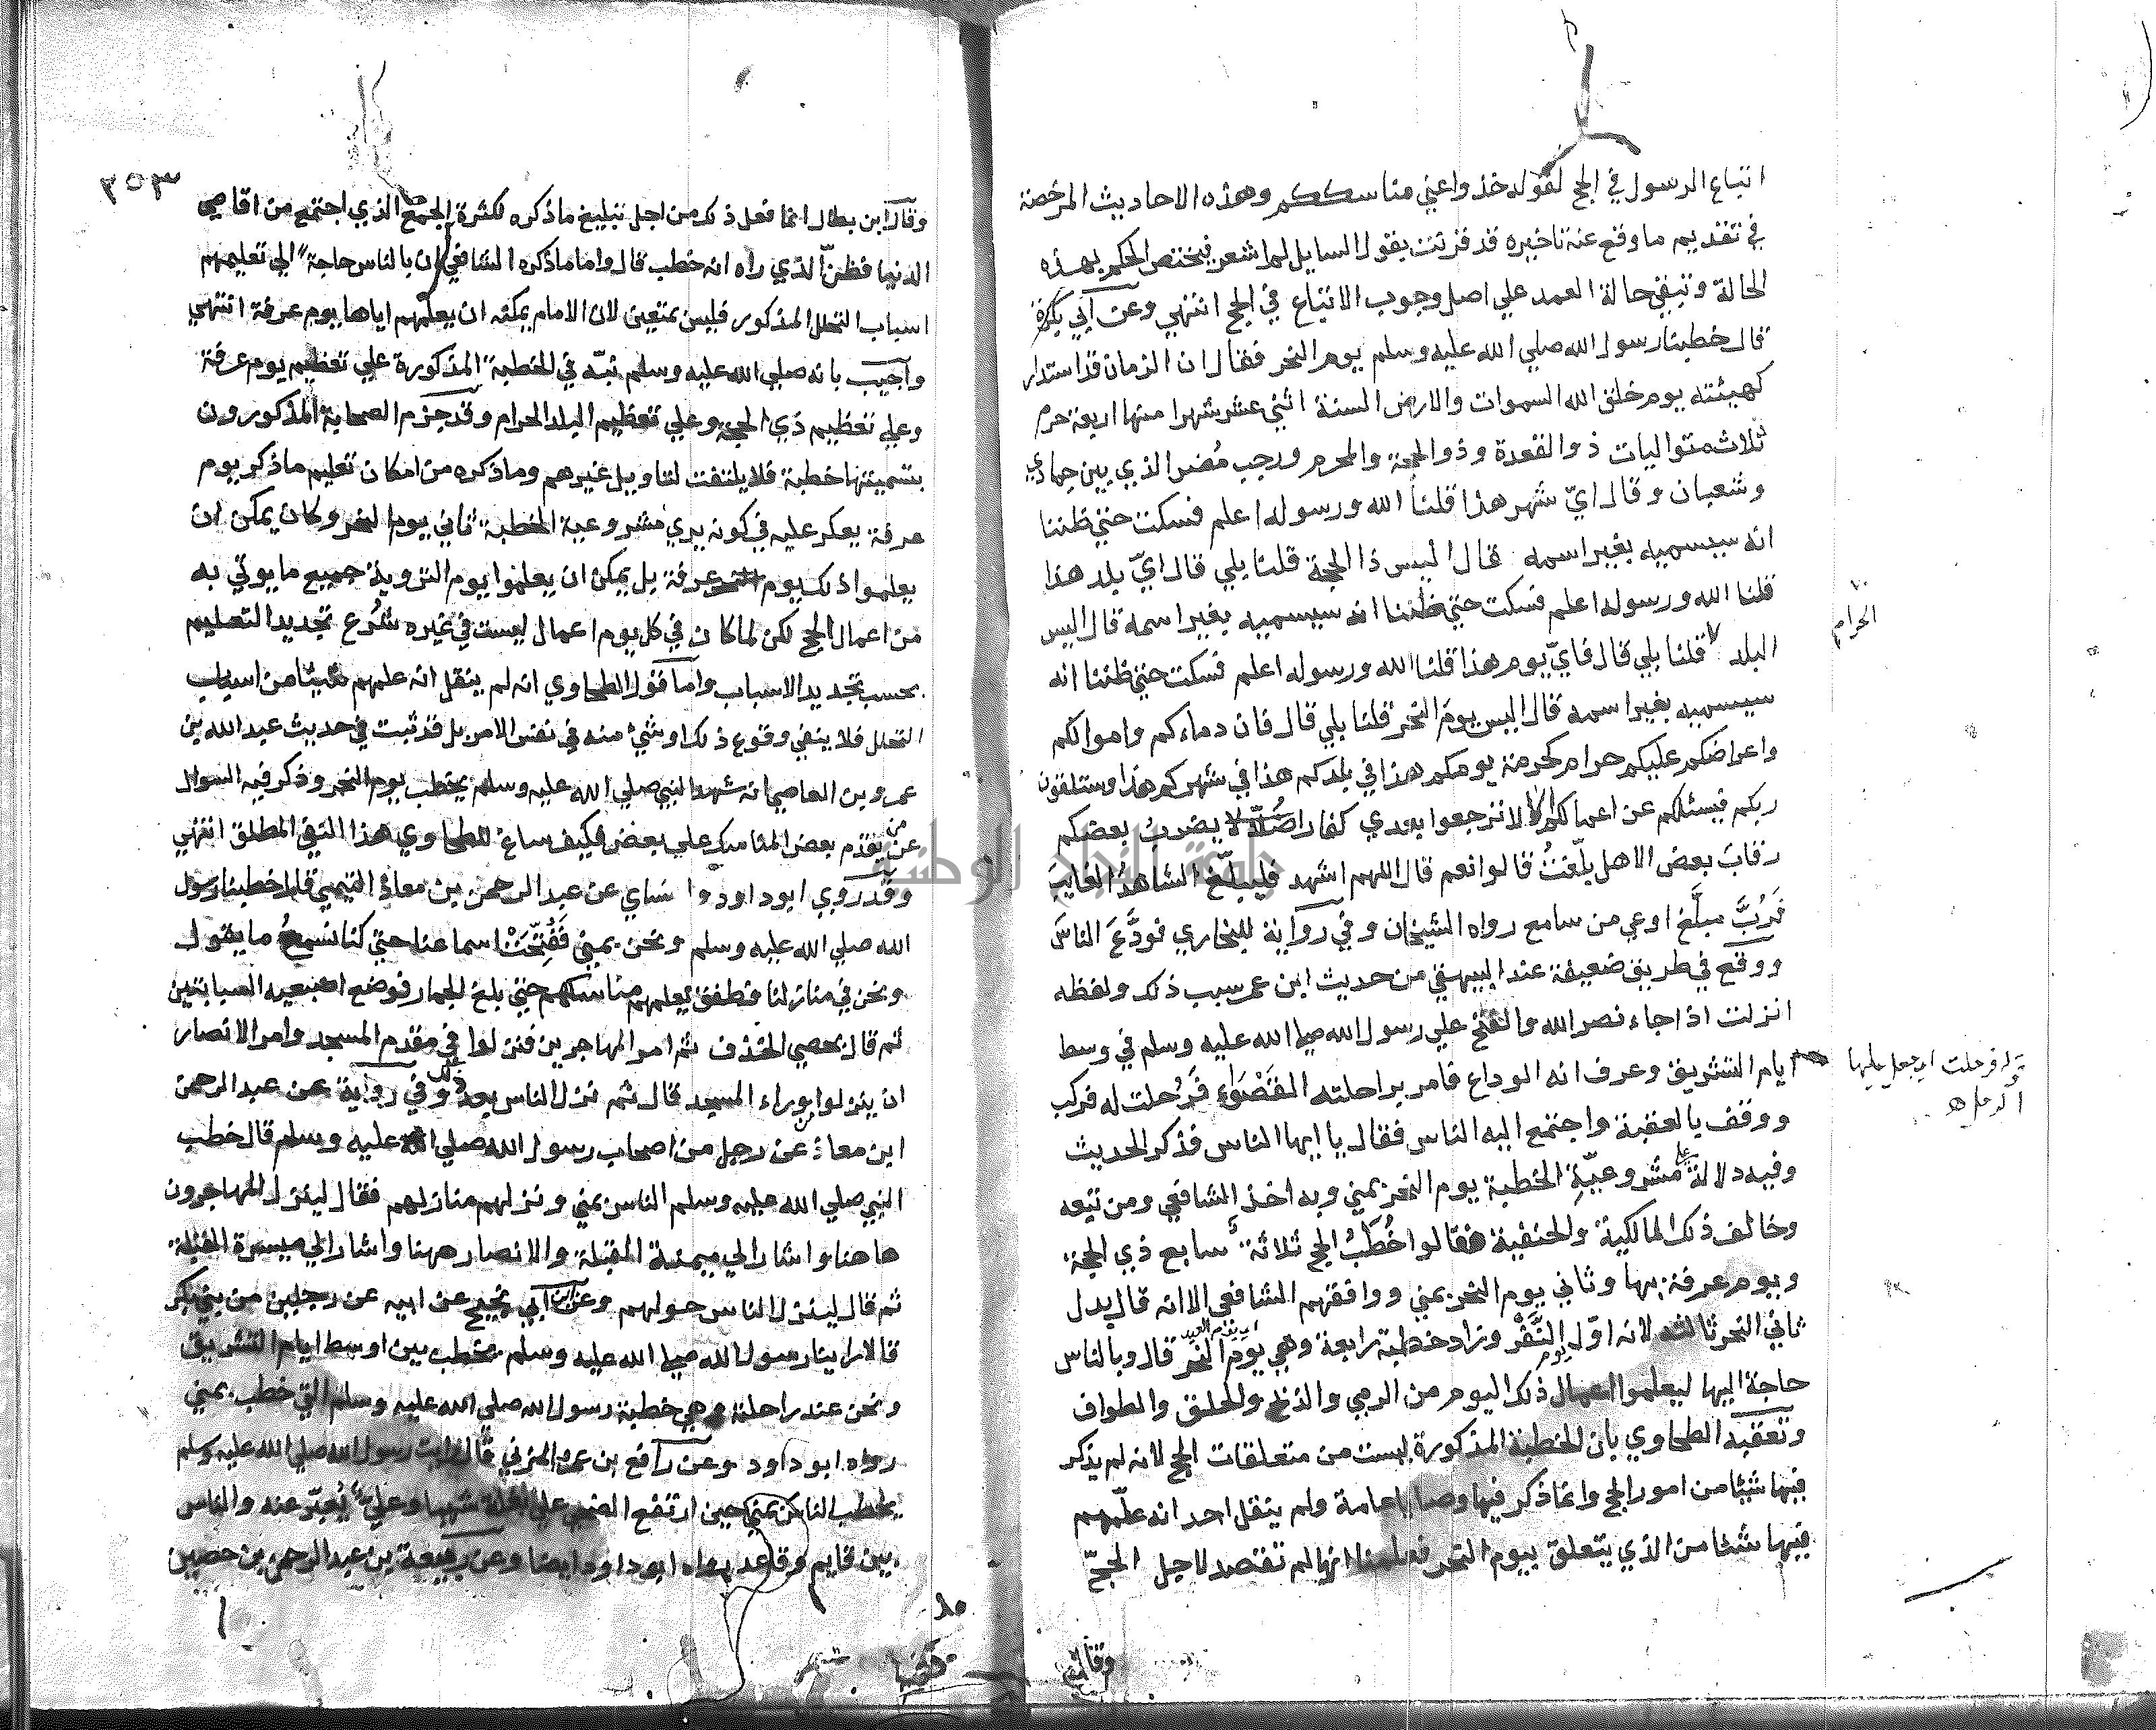 اتباع الرسول في الحج لقوله خذوا عني مناسككم وهذه الاحاديث المرخصة
في تقديم ما وقع عنه تاخيره قد قرنت بقول السايل لم اشعر فيختص الحكم بهذه
الحالة وتبقي حالة العمد علي اصل وجوب الاتباع في الحج انتهي وعن ابي بكرة
قال خطبنا رسول الله صلي الله عليه وسلم يوم النحر فقال ان الزمان قد استدار
كهيئته يوم خلق الله السموات والارض السنة اثني عشر شهرا منها اربعة حرم
ثلاث متواليات ذو القعدة وذو الحجة والمحرم ورجب مُضر الذي بين جمادي
وشعبان وقال ايّ شهر هذا قلنا الله ورسوله اعلم فسكت حتي ظننا
انه سيسميه بغير اسمه قال اليس ذا الحجة قلنا بلي قال ايّ بلد هذا
قلنا الله ورسوله اعلم فسكت حتي ظننا انه سيسميه بغير اسمه قال اليس
البلد الحرام قلنا بلي قال فايّ يوم هذا قلنا الله ورسوله اعلم فسكت حتي ظننا انه
سيسميه بغير اسمه قال اليس يوم النحر قلنا بلي قال فان دماءكم واموالكم
واعراضكم عليكم حرام كحرمة يومكم هذا في بلدكم هذا في شهركم هذا وستلقون
ربكم فيسئلكم عن اعمالكم الا لا ترجعوا بعدي كفارا ضُلّالا يضربُ بعضكم
رقابَ بعض الا هل بلّغتُ قالوا نعم قال اللهم اشهد فليبلّغ الشاهدُ الغايبَ
فَرُبَّ مبلَّغ اوعي من سامع رواه الشيخان وفي رواية للبخاري فودَّعَ الناسَ
ووقع في طريق ضعيفة عند البيهقي من حديث ابن عمر سبب ذلك ولفظه
انزلت اذا جاء نصر الله والفتح علي رسول الله صلي الله عليه وسلم في وسط
ايام التشريق وعرف انه الوداع فامر براحلته القَصْوَاءِ فَرُحلت له فركب
قوله فرحلت اي جعل عليها
الرحل اه
ووقف بالعقبة واجتمع اليه الناس فقال يا ايها الناس فذكر الحديث
وفيه دلالة علي مشروعيّةِ الخطبة يوم النحر بمني وبه اخذ الشافعي ومن تبعه
وخالف ذلك المالكية والحنفية فقالوا خُطَبُ الحج ثلاثة سابع ذي الحجة
ويوم عرفة بها وثاني يوم النحر بمني ووافقهم الشافعي الا انه قال بدل
ثاني النحر ثالثه لانه اوّل النَّفْر وزاد خطبة رابعة وهي يوم النحر قال وبالناس
حاجة اليها ليعلموا اعمال ذلك اليوم من الرمي والذبح والحلق والطواف
وتعقبه الطحاوي بان الخطبة المذكورة ليست من متعلقات الحج لانه لم يذكر
فيها شيئا من امور الحج وانما ذكر فيها وصايا عامة ولم ينقل احد انه علّمهم
فيها شيئا من الذي يتعلق بيوم النحر فعلمنا انها لم تقصد لاجل الحجّ
وقال
٢٥٣
وقال ابن بطال انما فعل ذلك من اجل تبليغ ما ذكره لكثرة الجمع الذي اجتمع من اقاصي
الدنيا فظنّ الذي راه انه خطب قال واما ما ذكره الشافعي ان بالناس حاجة الي تعليمهم
اسباب التحلل المذكور فليس بمتعين لان الامام يمكنه ان يعلّمهم اياها يوم عرفة انتهي
واجيب بانه صلي الله عليه وسلم نبّه في الخطبة المذكورة علي تعظيم يوم عرفة
وعلي تعظيم ذي الحجة وعلي تعظيم البلد الحرام وقد جزم الصحابة المذكورون
بتسميتها خطبة فلا يلتفت لتاويل غيرهم وما ذكره من امكان تعليم ما ذكر يوم
عرفة يعكر عليه في كونه يري مشروعية الخطبة ثاني يوم النحر وكان يمكن ان
يعلموا ذلك يوم عرفة بل يمكن ان يعلموا يوم التروية جميع ما يوتي به
من اعمال الحج لكن لما كان في كل يوم اعمال ليست في غيره شُرع تجديد التعليم
بحسب تجديد الاسباب واما قول الطحاوي انه لم ينقل انه علمهم شيئا من اسباب
التحلل فلا ينفي وقوع ذلك او شيء منه في نفس الامر بل قد ثبت في حديث عبد الله بن
عمرو بن العاصي انه شهد النبي صلي الله عليه وسلم يخطب يوم النحر وذكر فيه السوال
عن من يقدم بعض المناسك علي بعض فكيف ساغ للطحاوي هذا النفي المطلق انتهي
وقد روي ابو داود والنساي عن عبد الرحمن بن معاذ التيمي قال خطبنا رسول
الله صلي الله عليه وسلم ونحن بمني فَفُتِّحَتْ اسماعنا حتي كنا نسمعُ ما يقول
ونحن في منازلنا فطفق يعلمهم مناسكهم حتي بلغ الجمار فوضع اصبعيه السبابتين
ثم قال بحصي الخذف ثم امر المهاجرين فنزلوا في مقدم المسجد وامر الانصار
ان ينزلوا من وراء المسجد قال ثم نزل الناس بعد ذلك وفي رواية عن عبد الرحمن
ابن معاذ عن رجل من اصحاب رسول الله صلي الله عليه وسلم قال خطب
النبي صلي الله عليه وسلم الناس بمني ونزلهم منازلهم فقال لينزل المهاجرون
هاهنا واشار الي ميمنة القبلة والانصار ههنا واشار الي ميسرة القبلة
ثم قال لينزل الناس حولهم وعن ابن ابي نجيح عن ابيه عن رجلين من بني بكر
قالا راينا رسول الله صلي الله عليه وسلم يخطب بين اوسط ايام التشريق
ونحن عند راحلته وهي خطبة رسول الله صلي الله عليه وسلم التي خطب بمني
رواه ابو داود وعن رافع بن عمرو المزني قال رايت رسول الله صلي الله عليه وسلم
يخطب الناس بمني حين ارتفع الضحي علي بغلة شهبا وعليّ يُعبّر عنه والناس
بين قايم وقاعد رواه ابو داود ايضا وعن ربيعة بن عبد الرحمن بن حصين
جامعة النجاح الوطنية